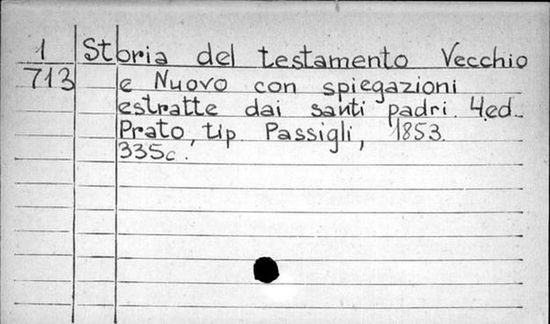 1
713
Storia del testamento Vecchio
e Nuovo con spiegazioni
estratte dai santi padri. 4ed.
Prato, tip Passigli, 1853.
335c.